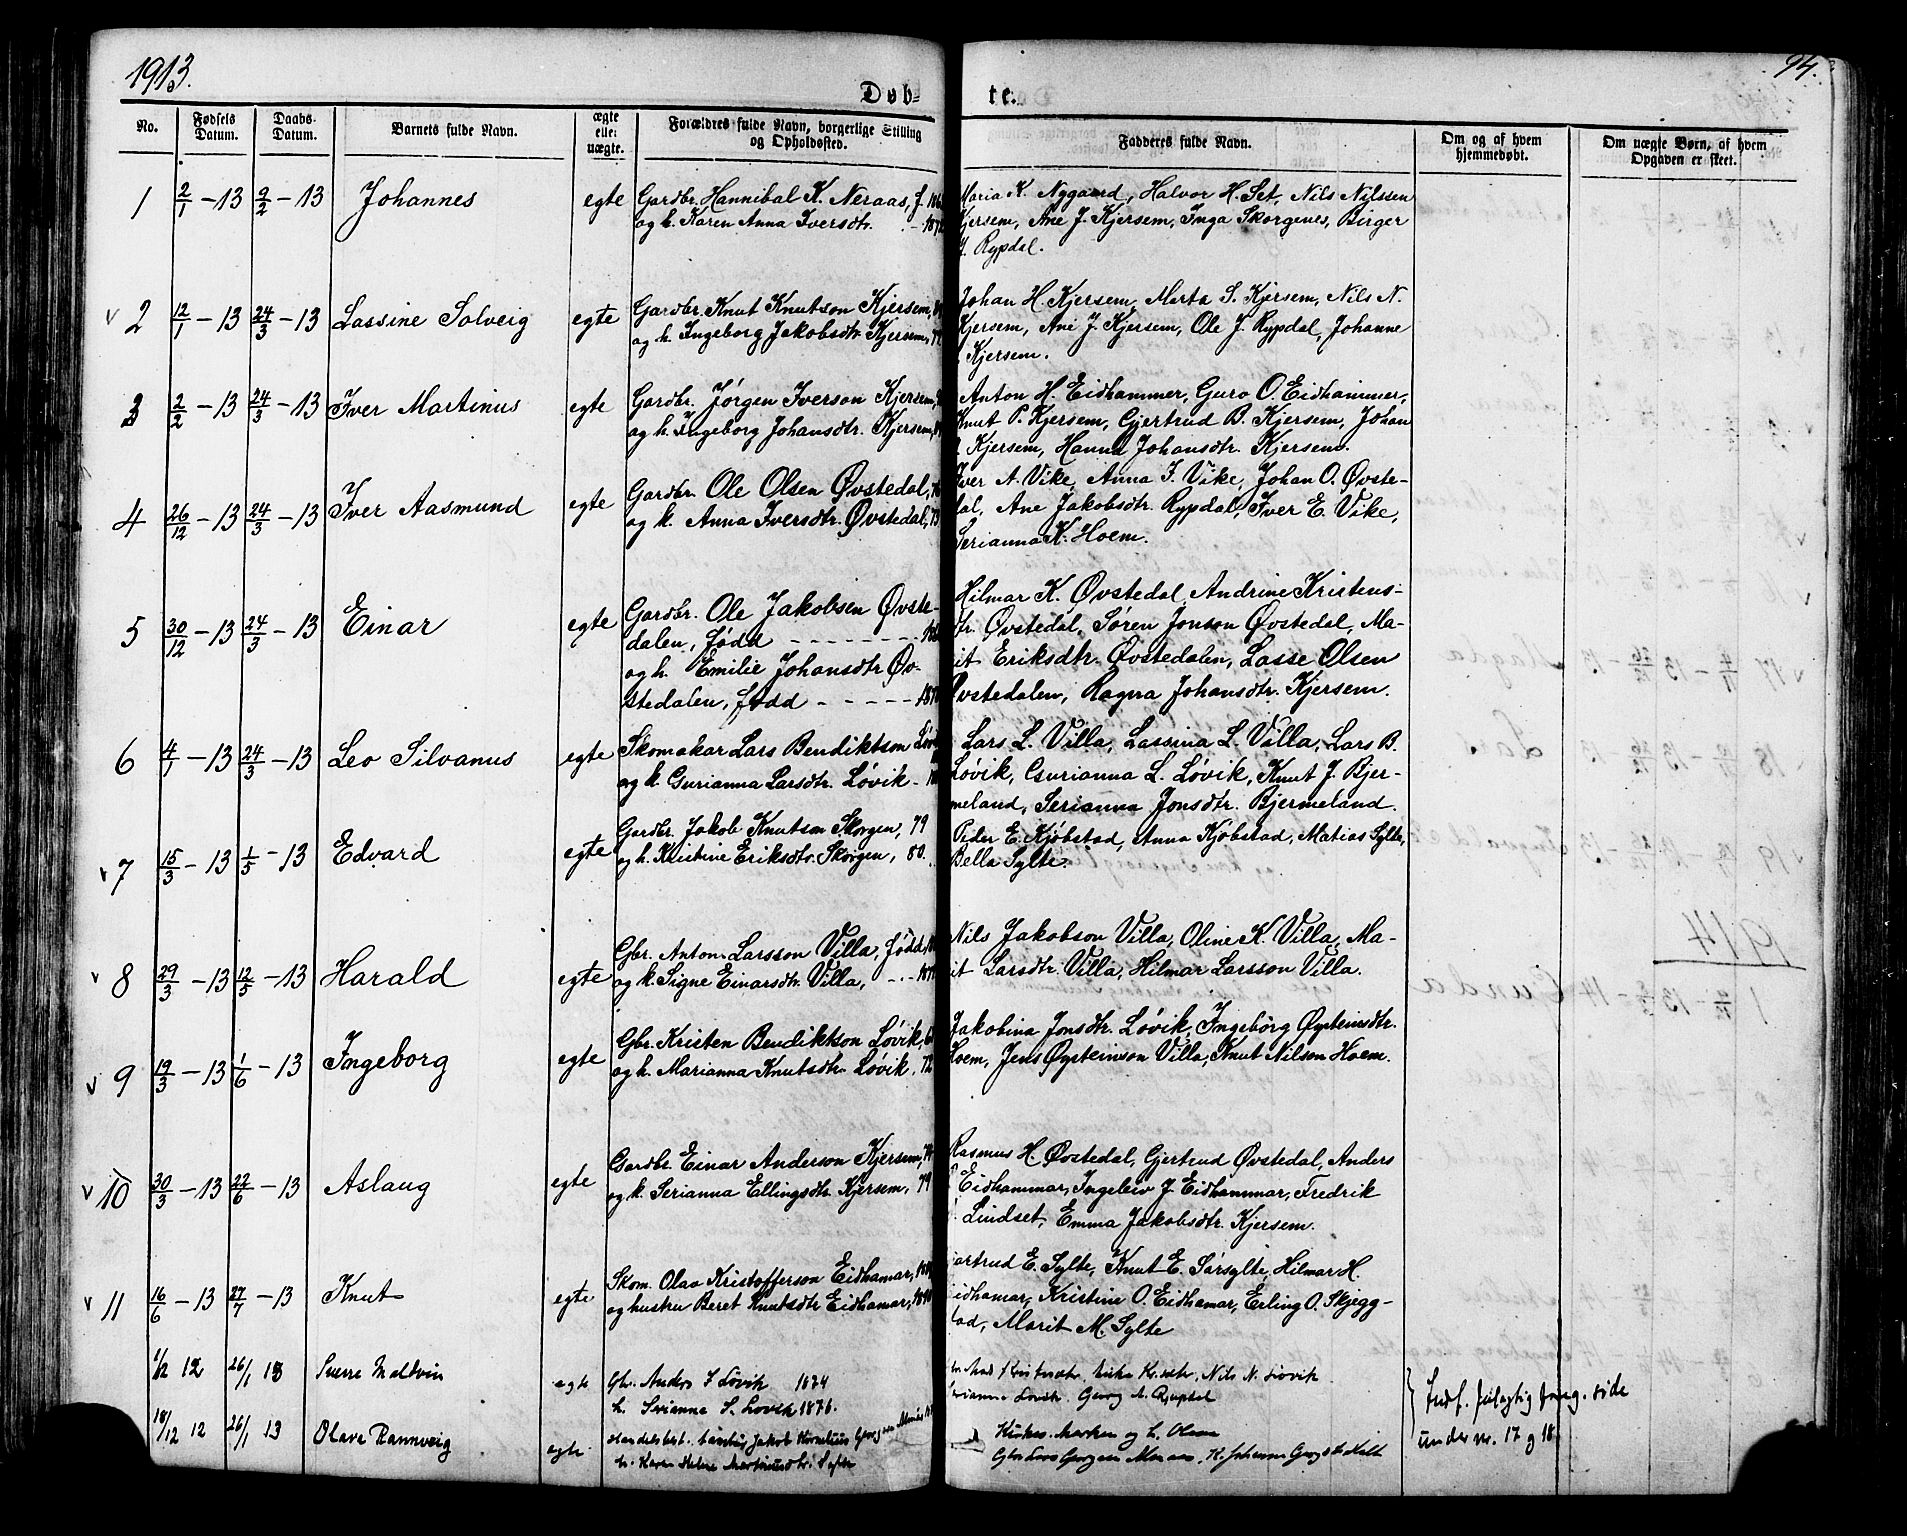 1913.
94.
Døb-
te.
No.
Fødsels Datum.
Daabs-Datum.
Barnets fulde Navn.
ægte elle: uægte.
Forældres fulde Navn, borgerlige Stilling og Opholdssted.
Fadderes fulde Navn.
Om og af hvem hjemmedøbt.
Om uægte Børn, af hvem Opgaven er skeet.
1 2/1 - 13 9/2 - 13 Johannes egte
Gardbr. Hannibal K. Neraas, f.
og h. Karen Anna Iversdtr.
Maria K. Nygaard, Halvor H. Set, Nils Nilssen
Kjersem, Ane J. Kjersem, Inga Skorgenes, Birger
Rypdal.
2 12/1 - 13 24/3 - 13 Lassine Solveig egte
Gardbr. Knut Knutson Kjersem,
og h. Ingeborg Jakobsdtr. Kjersem,
Johan H. Kjersem, Marta S. Kjersem, Nils N.
Kjersem, Ane J. Kjersem, Ole J. Rypdal, Johanne
Kjersem.
3 2/2 - 13 24/3 - 13 Iver Martinus egte
Gardbr. Jørgen Iverson Kjersem,
og h. Ingeborg Johansdtr. Kjersem,
Anton H. Eidhammer, Guro O. Eidhammer,
Knut P. Kjersem, Gjertrud B. Kjersem, Johan
Kjersem, Hanna Johansdtr. Kjersem.
4 26/12 - 13 24/3 - 13 Iver Aasmund egte
Gardbr. Ole Olsen Øvstedal,
og k. Anna Iversdtr. Øvstedal,
Iver A. Vike, Anna I. Vike, Johan O. Øvste-
dal, Ane Jakobsdtr. Rypdal, Iver E. Vike,
Serianna K. Hoem.
5 30/12 - 13 24/3 - 13 Einar egte
Gardbr. Ole Jakobsen Øvste-
dalen, født
og h. Emilie Johansdtr. Øv-
stedalen, født
Hilmar K. Øvstedal, Andrine Kristens-
dtr. Øvstedal, Søren Jonson Øvstedal, Ma-
rit Eriksdtr. Øvstedalen, Lasse Olsen
Øvstedalen, Ragna Johansdtr. Kjersem.
6 4/1 - 13 24/3 - 13 Leo Silvanus egte
Skomakar Lars Bendiktson
og k. Gurianna Larsdtr. Løvik -
Lars L. Villa, Lassina L. Villa, Lars B.
Løvik, Gurianna L. Løvik, Knut J. Bjer-
meland, Serianna Jonsdtr. Bjermeland.
7 15/3 - 13 1/5 - 13 Edvard egte
Gardbr. Jakob Knutson Skorgen, 79
og h. Kristine Eriksdtr. Skorgen, 80.
Peder E. Kjøbstad, Anna Kjøbstad, Matias Sylte,
Bella Sylte.
8 29/3 - 13 12/5 - 13 Harald egte
Gbr. Anton Larsson Villa, født
og k. Signe Einarsdtr. Villa,
Nils Jakobson Villa, Oline K. Villa, Ma-
rit Larsdtr. Villa, Hilmar Larsson Villa.
9 19/3 - 13 1/6 - 13 Ingeborg egte
Gbr. Kristen Bendiktson Løvik,
og h. Marianna Knutsdtr. Løvik, 72
Jakobina Jonsdtr. Løvik, Ingeborg Øysteinsdtr.
Hoem, Jens Øysteinson Villa, Knut Nilson Hoem.
10 30/3 - 13 22/6 - 13 Aslaug egte
Gardbr. Einar Anderson Kjersem,
og k. Serianna Ellingsdtr. Kjersem, 79
Rasmus H. Øvstedal, Gjertrud Øvstedal, Anders
Eidhammar, Ingeleiv J. Eidhammar, Fredrik
Lindset, Emma Jakobsdtr. Kjersem.
11 16/6 - 13 27/7 - 13 Knut egte
Skom. Olaa Kristofferson Eidhamar,
og hustru Beret Knutsdtr Eidhamar,
E. Sylte, Knut E. Sørsylte, Hilmar H.
Eidhamar, Kristine O. Eidhamar, Erling O. Skjegg-
stad, Marit M. Sylte
1/12 12 26/1 13 Sverre Maldvin egte
Gbr. Anders Løvik 1874
h. Serianna S. Løvik 1876.
Nils N. Løvik
Løvik. Georg A. Rypdal
18/12 12 26/1 13 Olava Rannveig egte
Handelsbest. Jakob Kornelius
h. Karen Helene Martinusdtr.
og L. Olsen
Indf. feilagtig foreg. side
under nr. 17 og 18